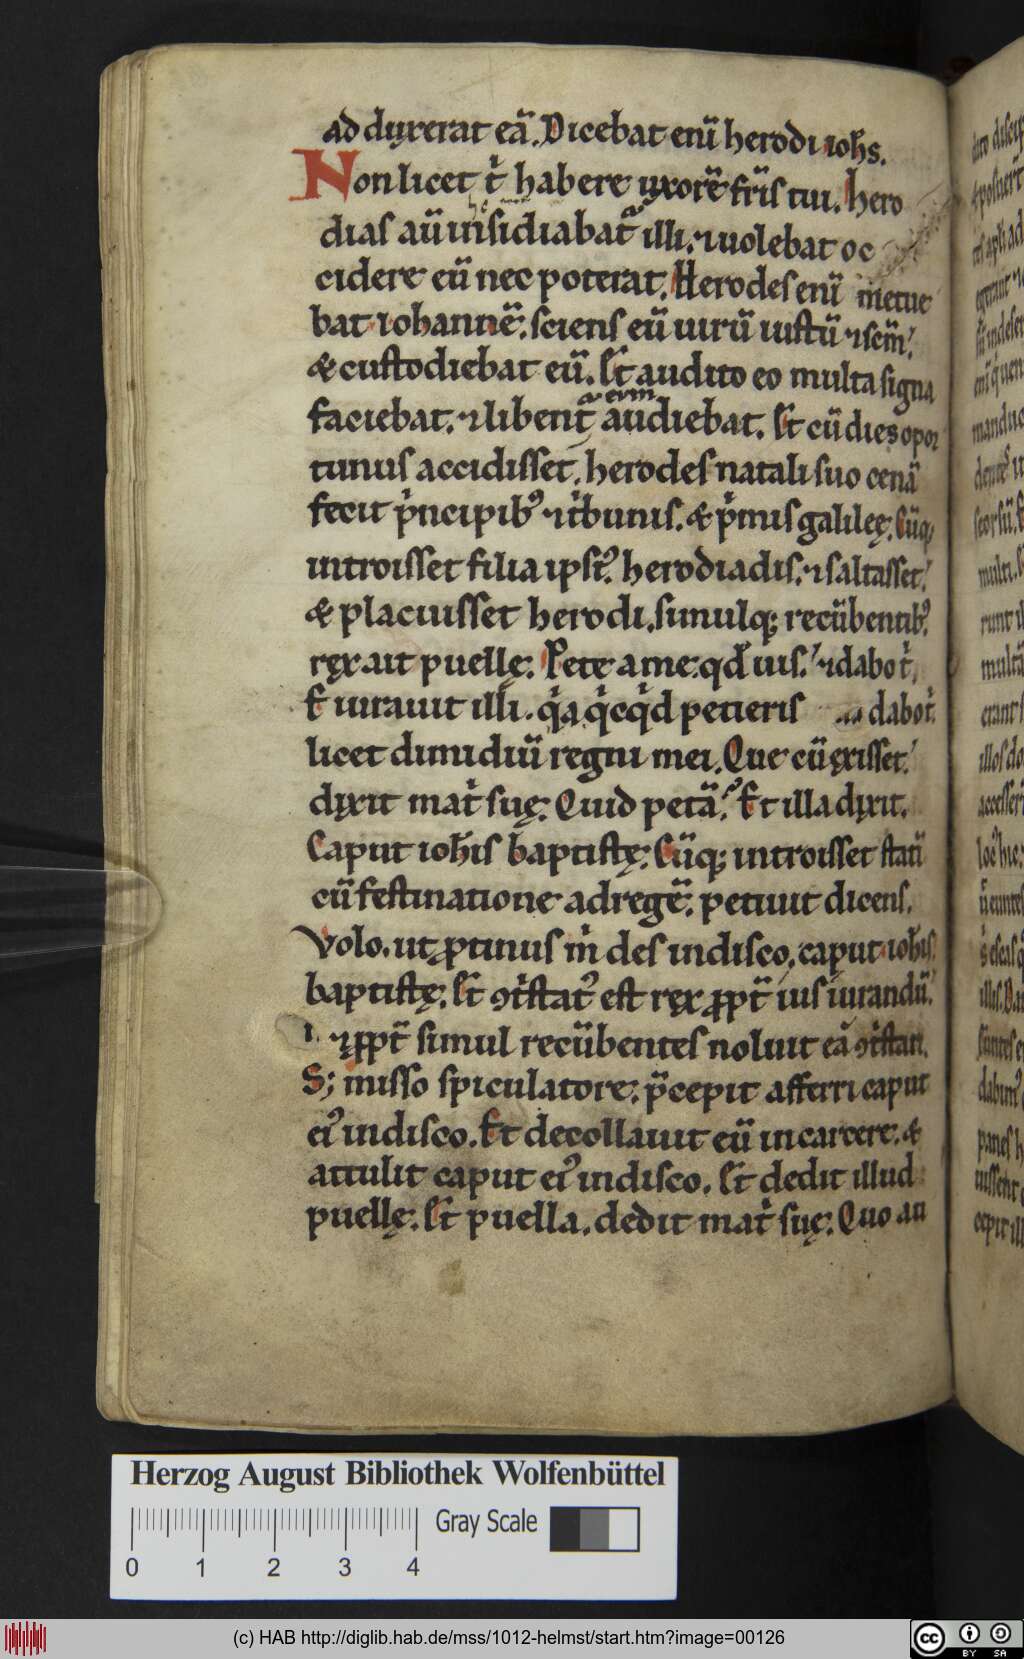 ad duxerat eā. Dicebat enī herodi ioħs.
Non licet t̓ habere uxorē fr̄is tui. Hero
dias aū insidiabat̄ illi. ⁊ uolebat oc
cidere eū nec poterat. Herodes enī metue
bat iohannē. sciens eū uirū iustū ⁊ sc̄m.
& custodiebat eū. Et audito eo multa signa
faciebat. ⁊ libent̄ eum audiebat. Et cū dies opor
tunus accidisset. herodes natali suo cenā
fecit p̓ncipib; ⁊ t̓bunis. & p̓mis galileę. Cūq;
introisset filia ipsi᷒. herodiadis. ⁊ saltasset.
& placuisset herodi. simulq; recūbentib᷒.
rex ait puellę. Pete a me. qd̄ uis. ⁊ dabo t̓.
Et iurauit illi. q̓a q̓cq̓d petieris dabo t̓.
licet dimidiū regni mei. Que cū exisset.
dixit mat̓ suę. Quid petā. Et illa dixit.
Caput ioħis baptistę. Cūq; introisset statī
cū festinatione ad regē. petiuit dicens.
Volo. ut ꝓtinus m̓ des in disco. caput ioħis
baptistę. Et ꝯt̓stat᷒ est rex ꝓpt̄ ius iurandū.
⁊ ꝓpt̄ simul recūbentes noluit eā ꝯt̓stari.
S; misso spiculatore. p̄cepit afferri caput
ei᷒ in disco. Et decollauit eū in carcere. &
attulit caput ei᷒ in disco. Et dedit illud
puellę. Et puella. dedit mat̓ suę. Quo au
Herzog August Bibliothek Wolfenbüttel
Gray Scale
0 1 2 3 4
(c) HAB http://diglib.hab.de/mss/1012-helmst/start.htm?image=00126
cc BY SA